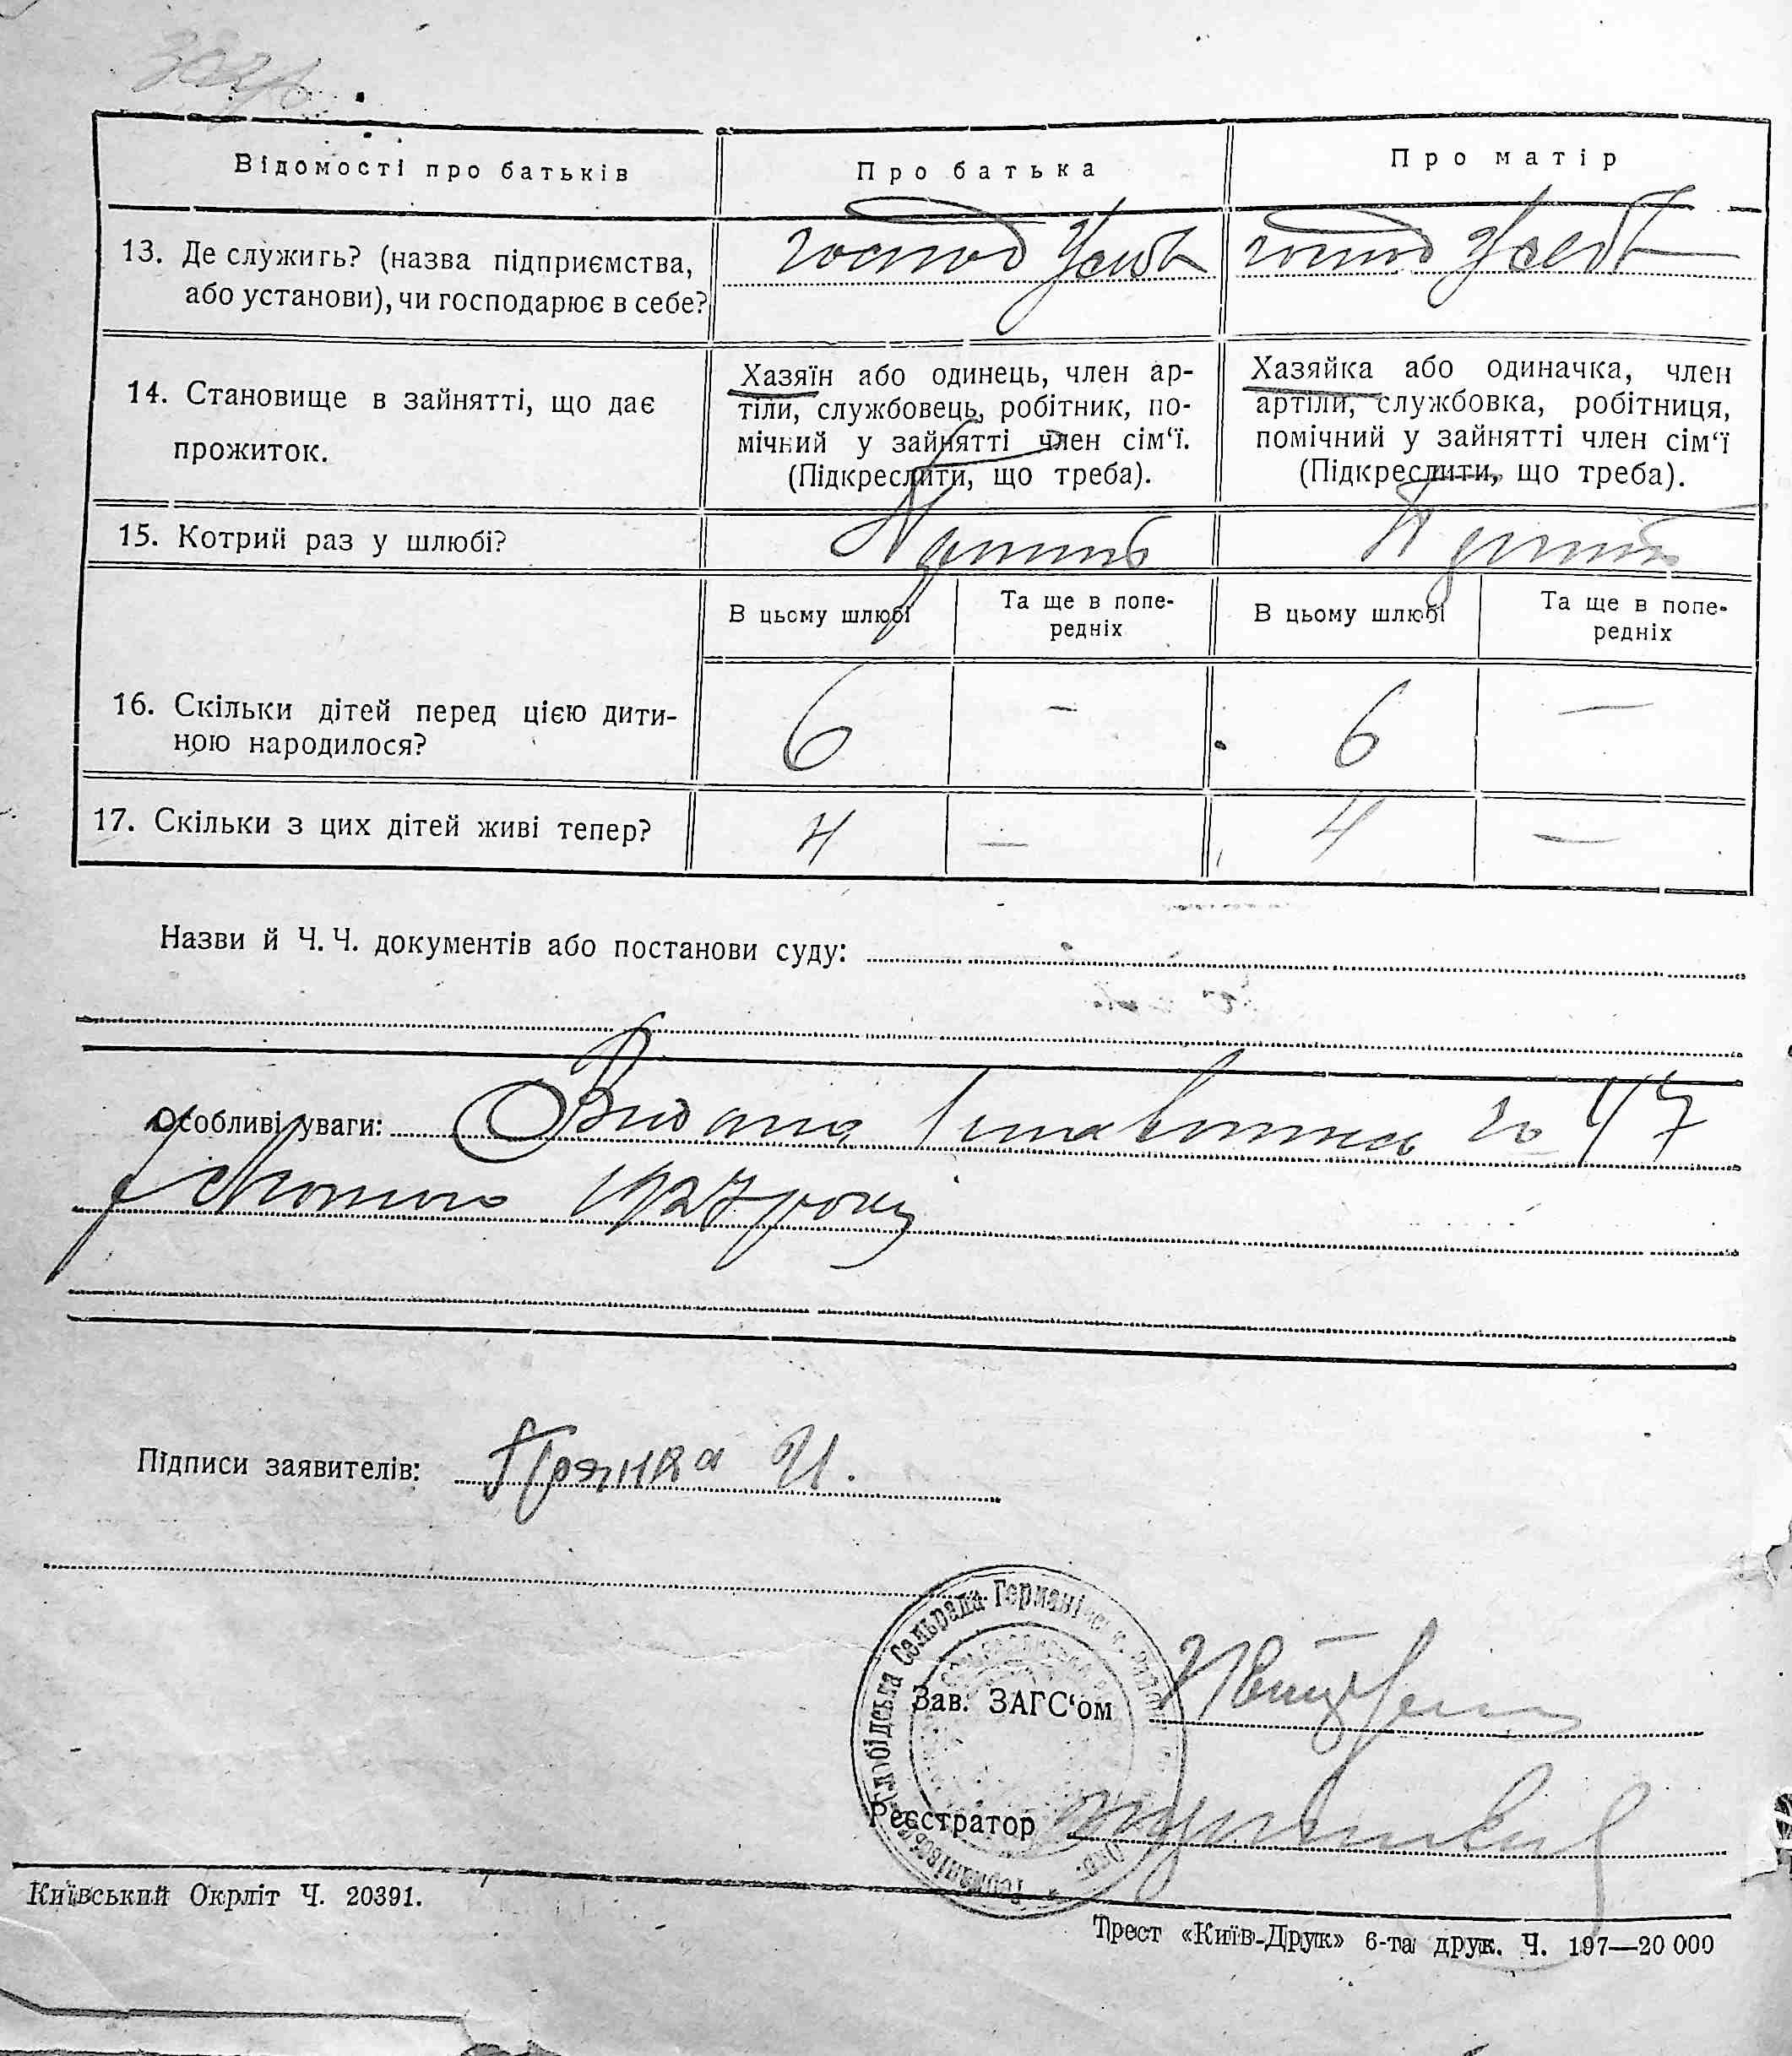 Відомості про батьків
Про батька
Про матір
13. Де служить? (назва підприємства,
або установи), чи господарює в себе?
господ
господ
14. Становище в зайнятті, що дає
прожиток.
Хазяїн або одинець, член ар-
тіли, службовець, робітник, по-
мічний у зайнятті член сім‘ї.
(Підкреслити, що треба).
Хазяйка або одиначка, член
артіли, службовка, робітниця,
помічний у зайнятті член сім‘ї
(Підкреслити, що треба).
15. Котрий раз у шлюбі?
В цьому шлюбі
Та ще в попе-
редніх
В цьому шлюбі
Та ще в попе-
редніх
16. Скільки дітей перед цією дити-
ною народилося?
6 — 6 —
17. Скільки з цих дітей живі тепер?
4 — 4 —
Назви й Ч. Ч. документів або постанови суду:
Особливі уваги: Видана 47
Лютого 1927 року
Підписи заявителів:
Слобідська Сельрада Германівськ
Зав. ЗАГС‘ом
Реєстратор
Київський Окрліт Ч. 20391.
Трест «Київ-Друк» 6-та друк. Ч. 197—20 000